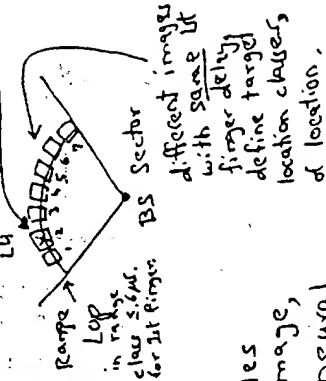 L4
1 2 3 4 5 6 7
Range
LOP
in range
class 5.6 µs.
for 1st finger.
BS Sector
different images
with same 1st
finger delay,
define target
location classes,
of location.
les
mage,
neural